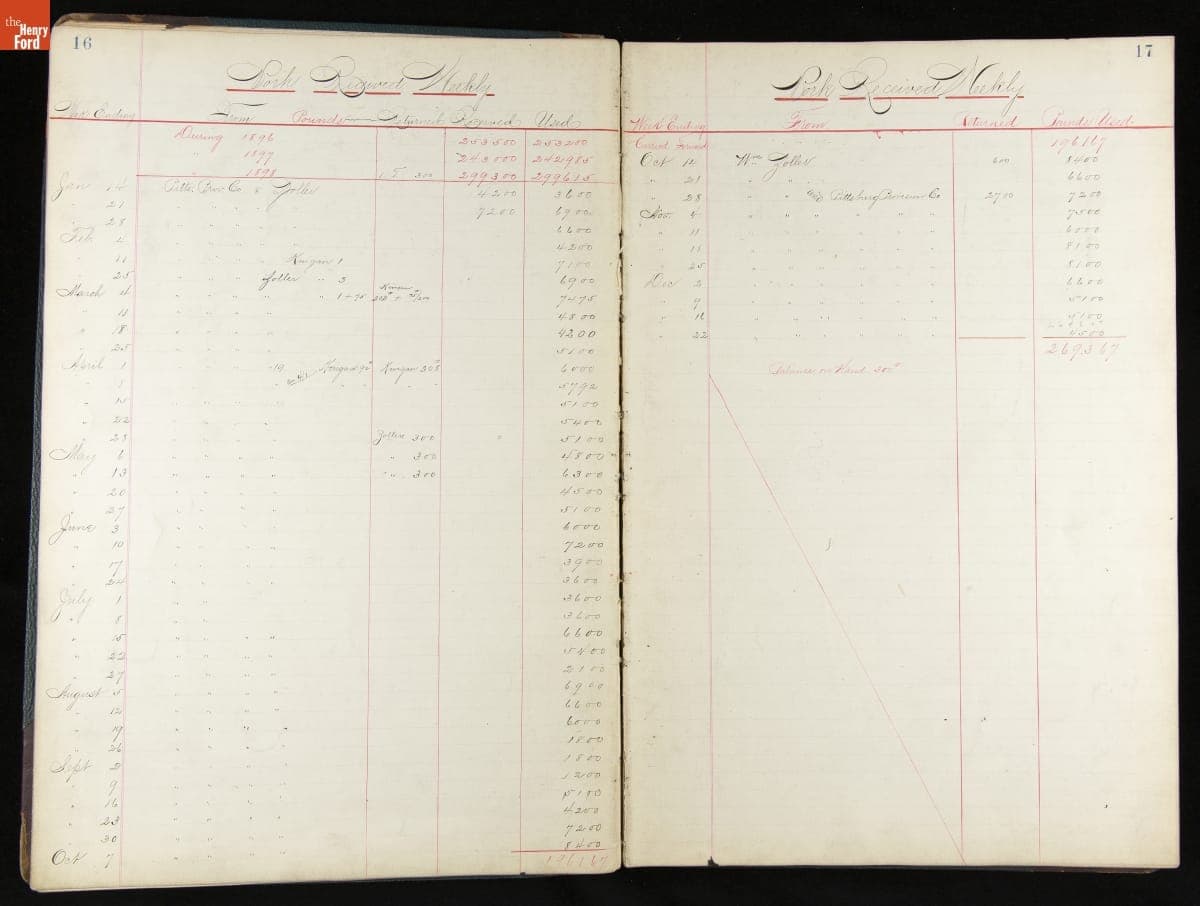 the Henry Ford
16
Pork Received Weekly
Week Ending From Pounds Returned Received Used
During 1896 253500 253200
" 1897 243000 242985
" 1898 300 299300 299615
Jan 14 Pitts. Prov Co & Zoller 4200 3600
" 21 " " " 7200 6900
" 28 " " " " 6600
Feb 4 " " " " 4200
" 11 " " " " Kingan 1 7100
" 25 " " " " Zoller " 3 6900
March 4 " " " " " 1+75 Kingan 7475
" 11 " " " " 4800
" 18 " " " " 4200
" 25 " " " " 5100
April 1 " " " 19 Kingan 92 Kingan 308 6000
" 8 " " " " " " 5792
" 15 " " " " 5100
" 22 " " " " 5400
" 28 " " " " Zoller 300 5100
May 6 " " " " " 300 4800
" 13 " " " " " 300 6300
" 20 " " " " 4500
" 27 " " " " 5100
June 3 " " " " 6000
" 10 " " " " 7200
" 17 " " " " 3900
" 24 " " " " 3600
July 1 " " 3600
" 8 " " 3600
" 15 " " " " 6600
" 22 " " " " 5400
" 27 " " " " 2100
August 5 " " " " 6900
" 12 " " " " 6600
" 19 " " " " 6000
" 26 " " " " 1800
Sept 2 " " " " 1800
" 9 " " " " 1200
" 16 " " " " 5100
" 23 " " " " 4200
" 30 " " " " 7200
Oct 7 " " " " 8400
196167
17
Pork Received Weekly
Week Ending From Returned Pounds Used
Carried Forward 196167
Oct 14 Wm Zoller 600 8400
" 21 " " 6600
" 28 " " and Pittsburg Provision Co 2700 7200
Nov. 4 " " " " " " 7500
" 11 " " " " " " 6000
" 18 " " " " " " 8100
" 25 " " " " " " 8100
Dec 2 " " " " " " 6600
" 9 " " " " " " 5100
" 16 " " " " " " 5100
" 22 " " " " " " 4500
269367
Balance on Hand 300